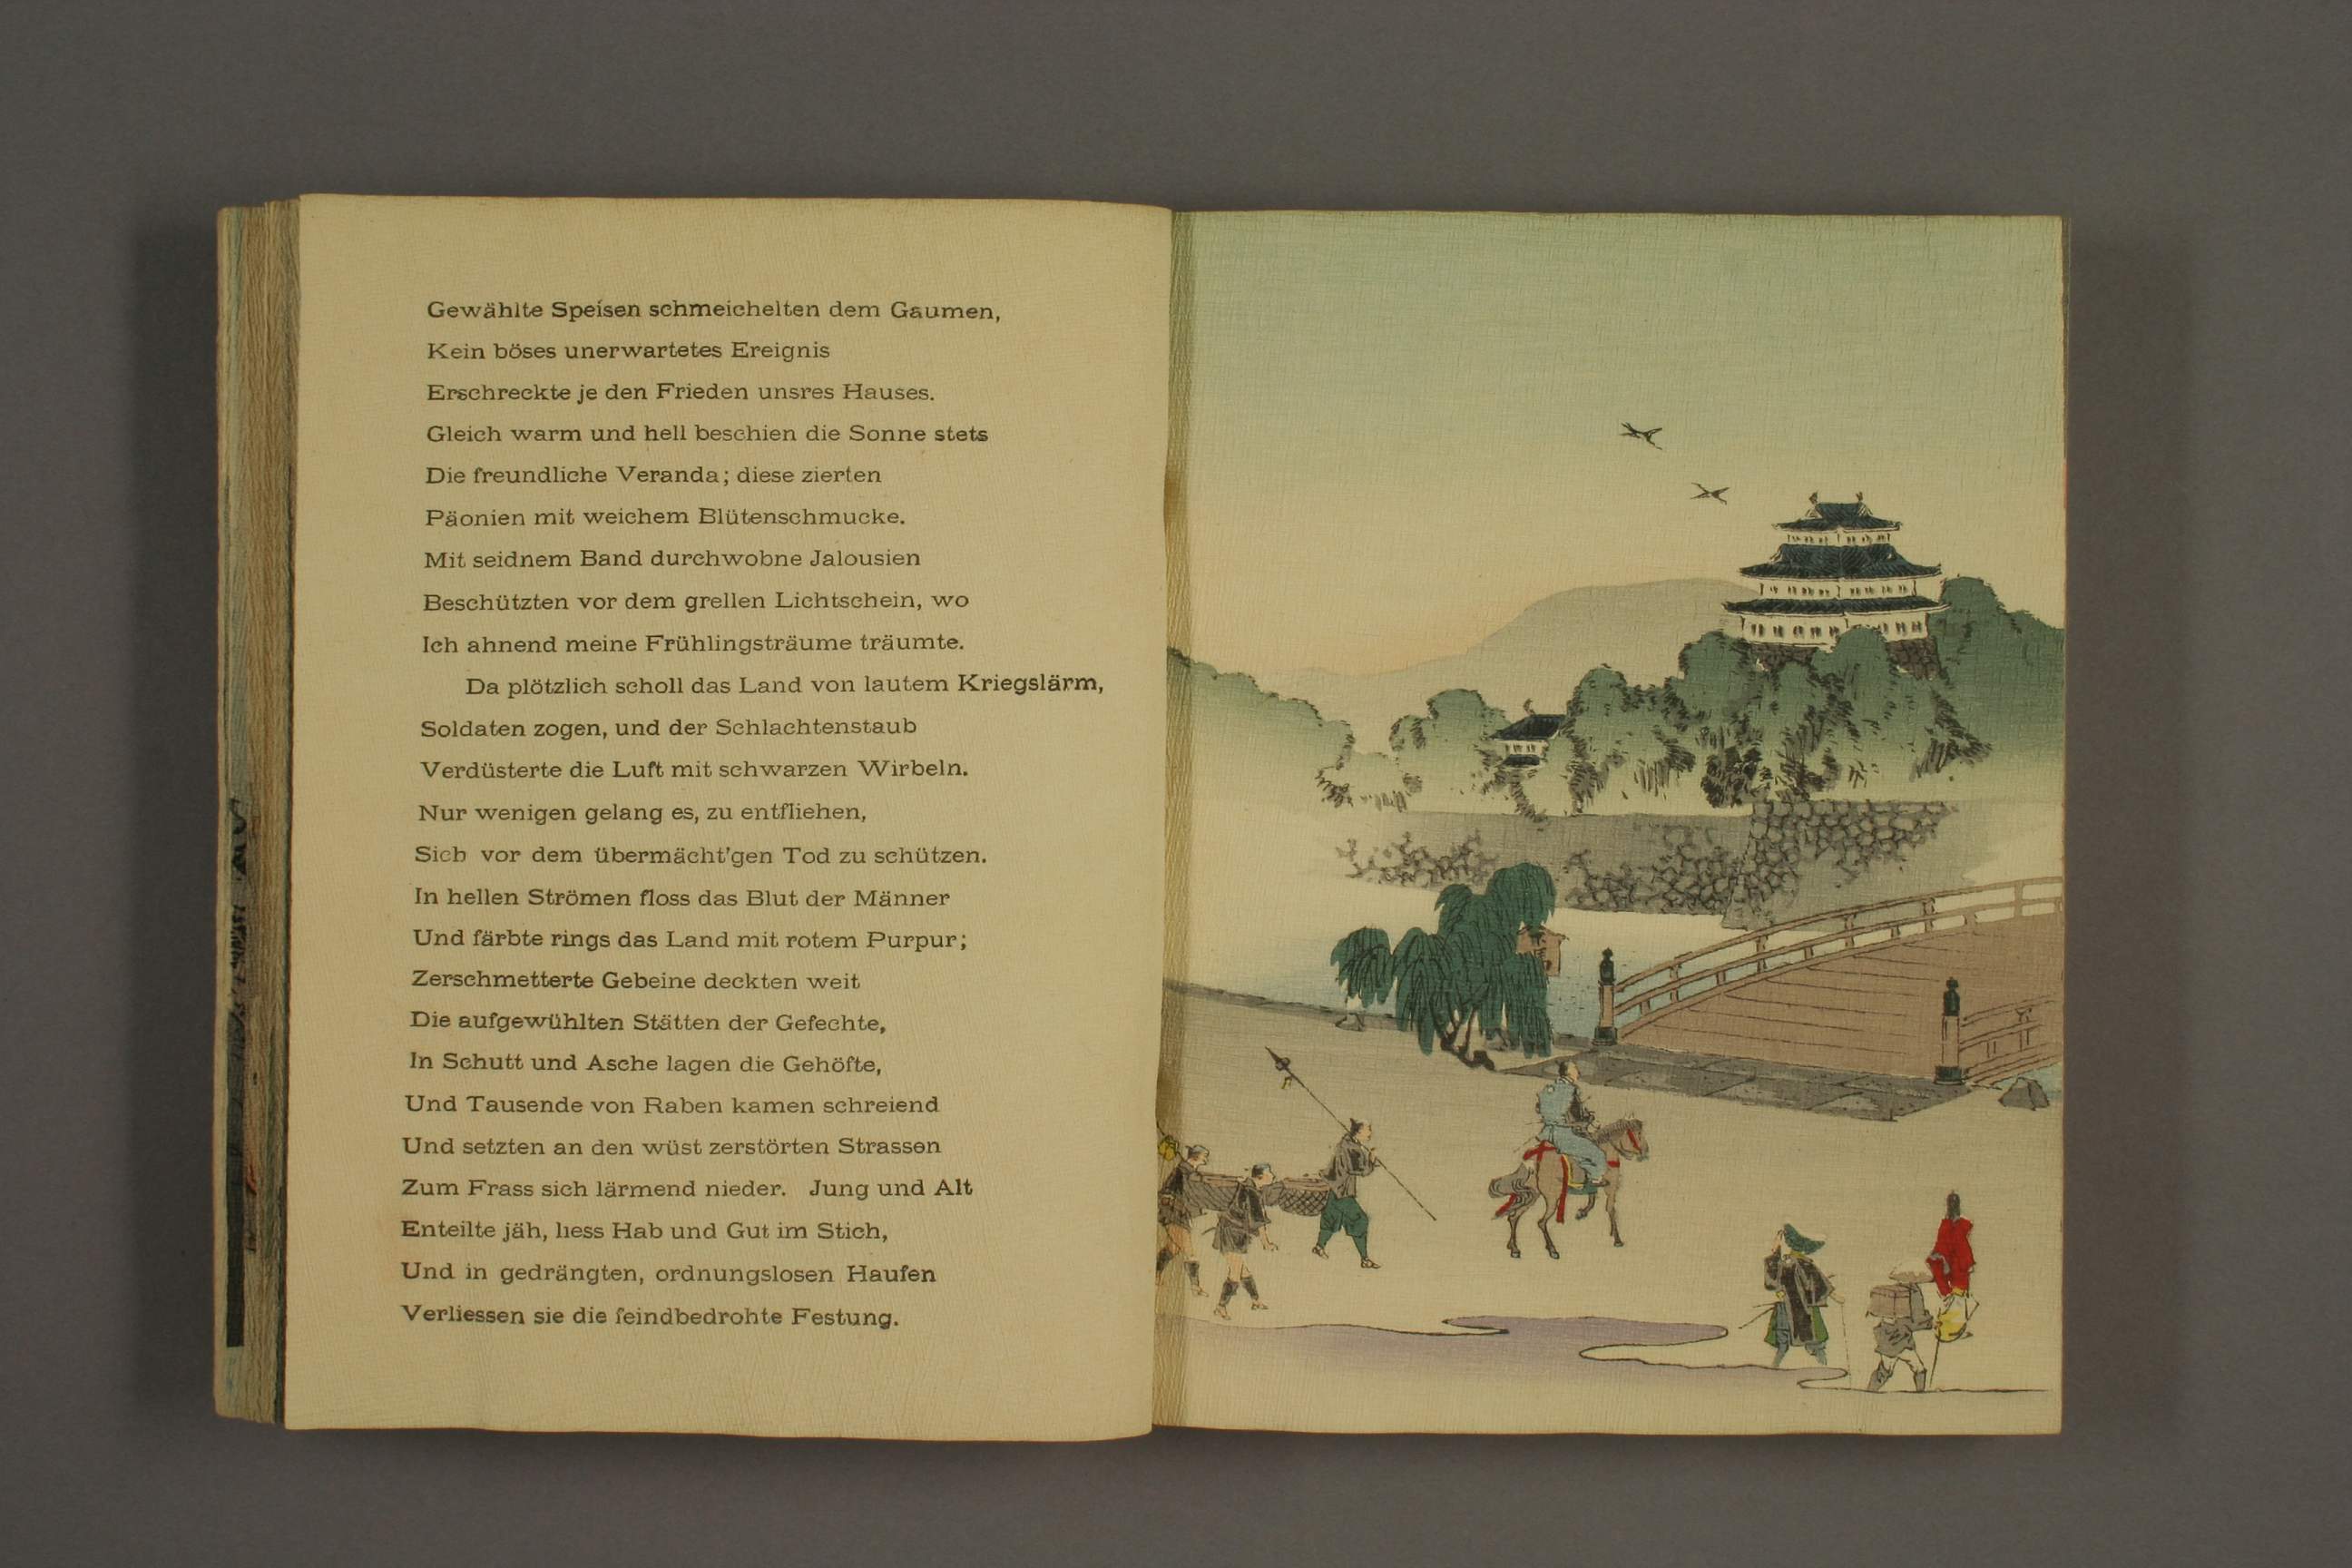 Gewählte Speisen schmeichelten dem Gaumen,
Kein böses unerwartetes Ereignis
Erschreckte je den Frieden unsres Hauses.
Gleich warm und hell beschien die Sonne stets
Die freundliche Veranda; diese zierten
Päonien mit weichem Blütenschmucke.
Mit seidnem Band durchwobne Jalousien
Beschützten vor dem grellen Lichtschein, wo
Ich ahnend meine Frühlingsträume träumte.
Da plötzlich scholl das Land von lautem Kriegslärm,
Soldaten zogen, und der Schlachtenstaub
Verdüsterte die Luft mit schwarzen Wirbeln.
Nur wenigen gelang es, zu entfliehen,
Sich vor dem übermächt'gen Tod zu schützen.
In hellen Strömen floss das Blut der Männer
Und färbte rings das Land mit rotem Purpur;
Zerschmetterte Gebeine deckten weit
Die aufgewühlten Stätten der Gefechte,
In Schutt und Asche lagen die Gehöfte,
Und Tausende von Raben kamen schreiend
Und setzten an den wüst zerstörten Strassen
Zum Frass sich lärmend nieder. Jung und Alt
Enteilte jäh, liess Hab und Gut im Stich,
Und in gedrängten, ordnungslosen Haufen
Verliessen sie die feindbedrohte Festung.